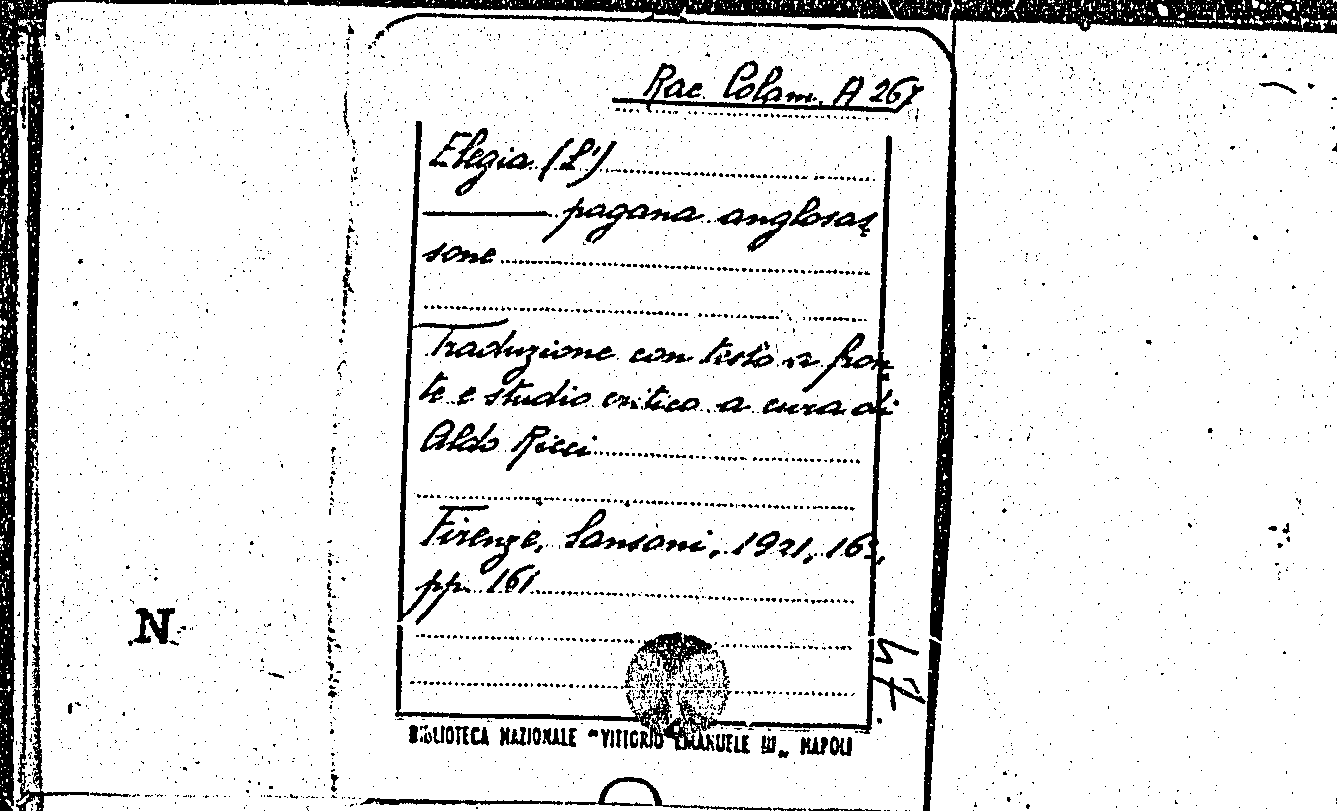 Rac. Colam. A 267
Elegia (L')
——— pagana anglosas
sone
Traduzione con testo a fron
te e studio critico a cura di
Aldo Ricci
Firenze, Sansoni, 1921, 16°,
pp. 161
N
BIBLIOTECA NAZIONALE "VITTORIO EMANUELE III„ NAPOLI